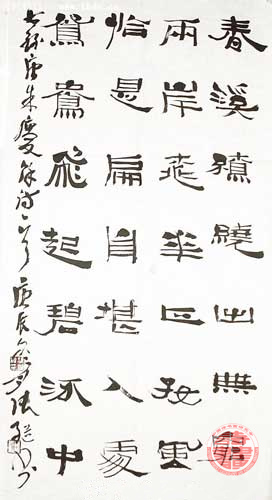 春溪繚繞出無窮
兩岸桃華正好風
恰是扁舟堪入處
鴛鴦飛起碧流中
唐朱慶餘詩一首 庚辰